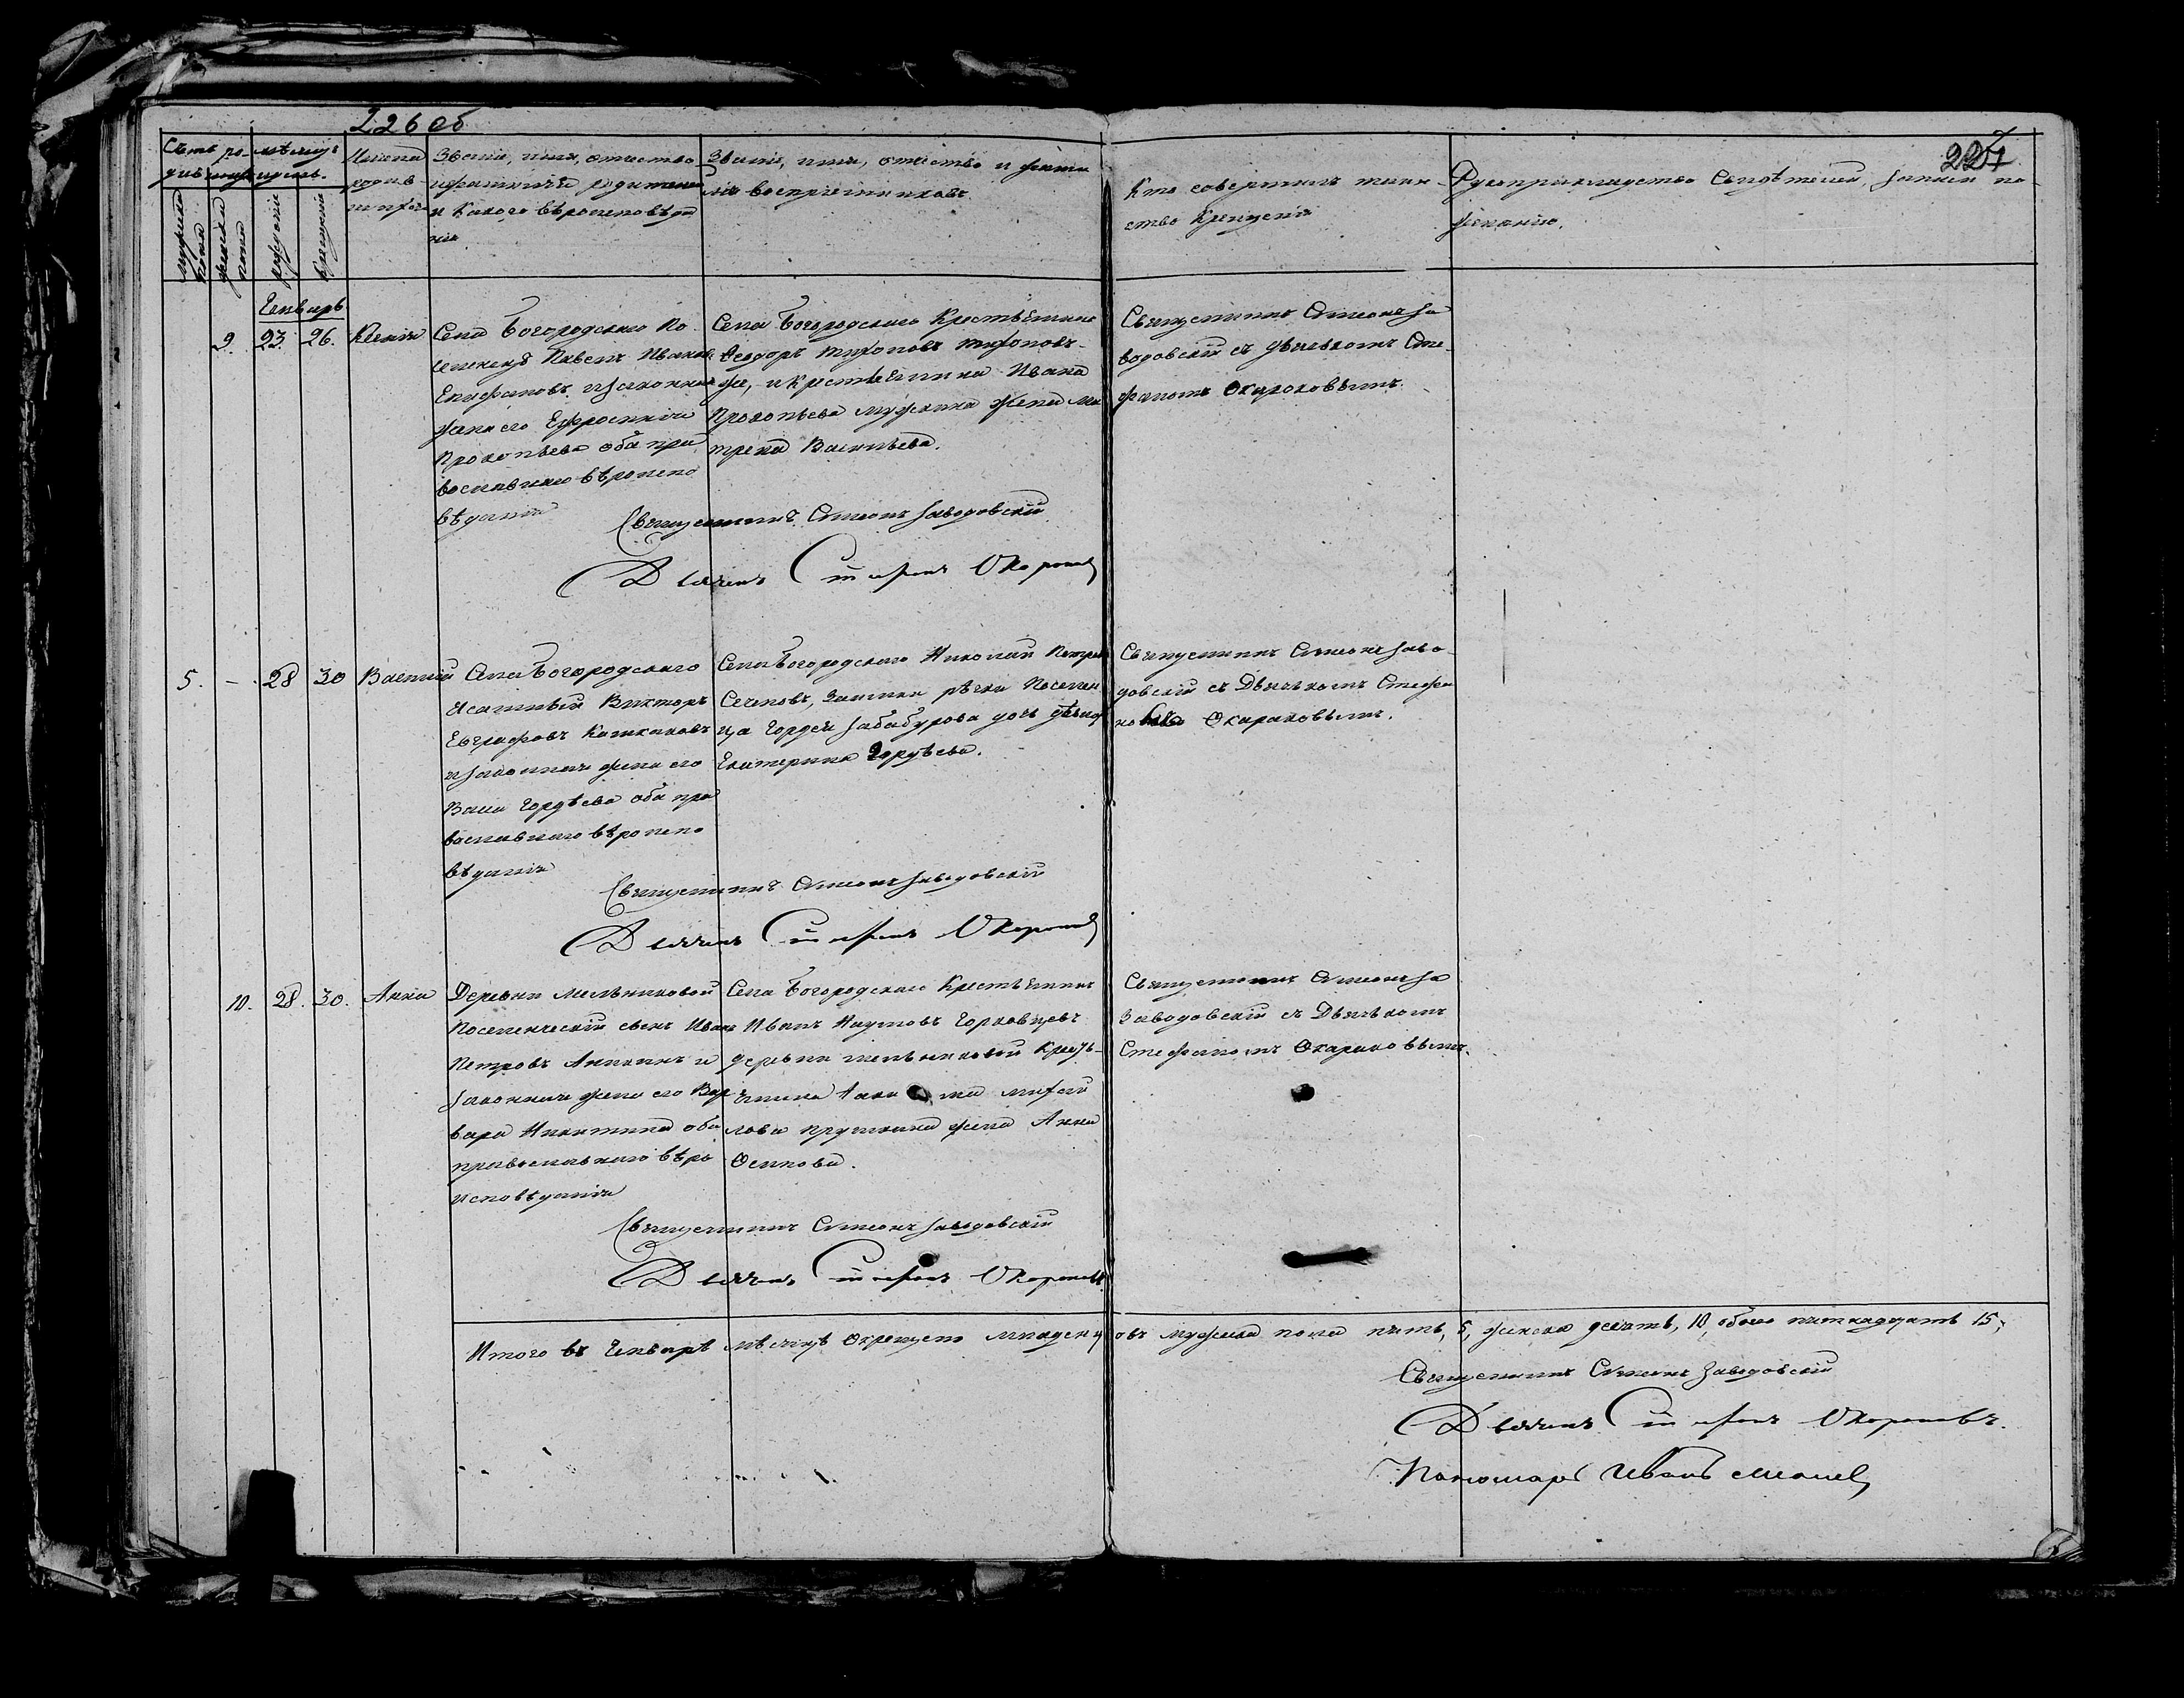 226 об
227
Счетъ ро- мѣсяцъ
дившихся и день.
мужеска пола
женска пола
рожденія
крещенія
Имена родив-
шихся
Званіе, имя, отчество
и фамилія родителей
и какого вѣроисповѣда
нія
Званіе, имя, отчество и фами
лія воспріемниковъ
Кто совершилъ таин-
ство крещенія
Рукоприкладство свидѣтелей записи по
желанію.
Генварь
9. 23. 26. Ксенія
Села Богородскаго По-
селенецъ Павелъ Ивановъ
Епифановъ и законная
жена его Ефросинія
Прокопьева оба пра
вославнаго вѣроиспо
вѣданія
Села Богородскаго Крестьянинъ
Феодоръ Тихоновъ Тихоновъ-
же, и крестьянина Ивана
Прокопьева жена Ма
трена Васильева.
Священникъ Симеонъ За
водовскій съ дьячькомъ Сте-
фаномъ Окороковымъ.
Священникъ Симеонъ Заводовскій
Дьячекъ Стефанъ Окороковъ
5. – 28 30 Василій
Села Богородскаго
Ясашный Викторъ
Евграфовъ
и законная жена его
Васса Гордѣева оба пра
вославнаго вѣроиспо
вѣданія
Села Богородскаго Николай Петровъ
Сеченовъ, Заимки рѣчки Поселен
ца Гордея Забабурова дочь дѣвица
Екатерина Гордѣева.
Священникъ Симеонъ Заво-
довскій съ Дьячькомъ Стефа
Окороковымъ.
Священникъ Симеонъ Заводовскій
Дьячекъ Стефанъ Окороковъ
10. 28. 30. Анна
Деревни Мельниковой
Поселенческій сынъ Иванъ
Петровъ Аникинъ и
законная жена его Вар
вара Никитина оба
православнаго вѣро
исповѣданія
Села Богородскаго Крестьянинъ
Иванъ Наумовъ Горковцевъ
деревни Мельниковой Кресть-
янина Михай
лова жена Анна
Осипова.
Священникъ Симеонъ За
Заводовскій съ Дьячькомъ
Стефаномъ Окороковымъ.
Священникъ Симеонъ Заводовскій
Дьячекъ Стефанъ Окороковъ
Итого въ Генварѣ мѣсяцѣ Окрещено младенцовъ мужеска пола пять, 5, женска десять, 10, обоего пятнадцать 15,
Священникъ Симеонъ Заводовскій
Дьячекъ Стефанъ Окороковъ.
Пономарь Иванъ